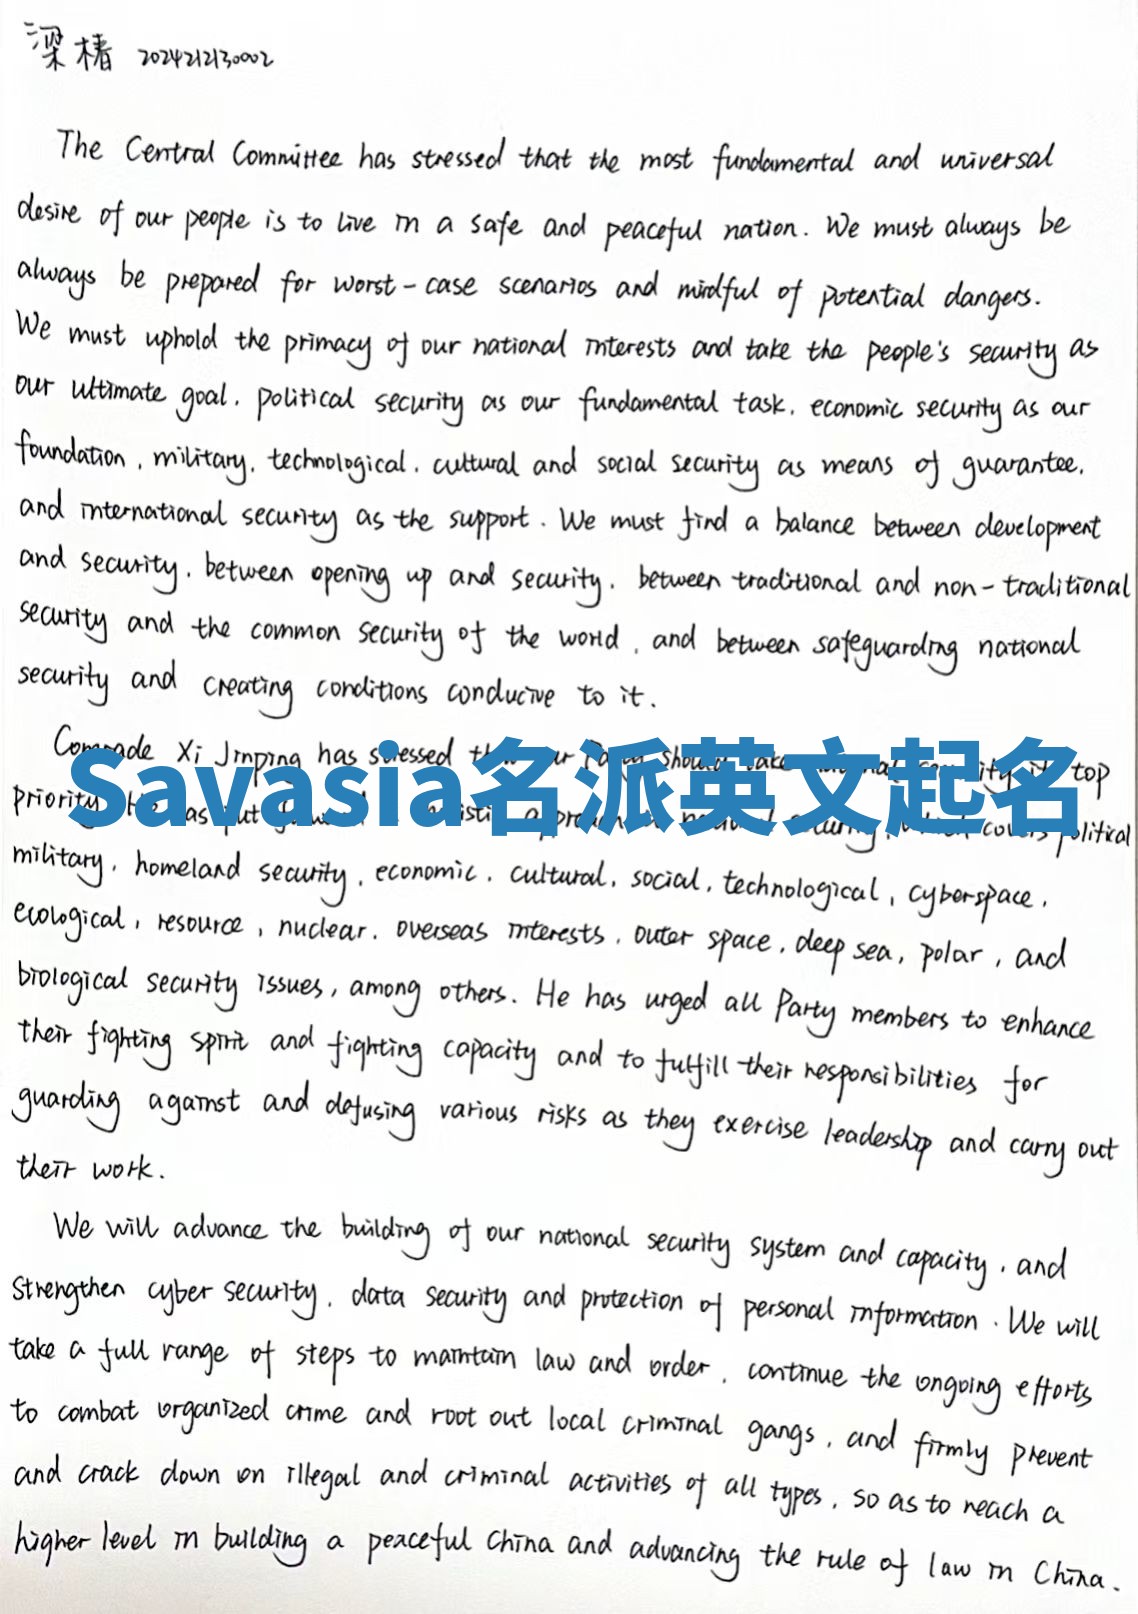 梁椿 2024212130002
The Central Committee has stressed that the most fundamental and universal
desire of our people is to live in a safe and peaceful nation. We must always be
always be prepared for worst-case scenarios and mindful of potential dangers.
We must uphold the primacy of our national interests and take the people's security as
our ultimate goal, political security as our fundamental task, economic security as our
foundation, military, technological, cultural and social security as means of guarantee,
and international security as the support. We must find a balance between development
and security, between opening up and security, between traditional and non-traditional
security and the common security of the world, and between safeguarding national
security and creating conditions conducive to it.
Comrade Xi Jinping has stressed Party should take top
Savasia名派英文起名
priority put political
military, homeland security, economic, cultural, social, technological, cyberspace,
ecological, resource, nuclear, overseas interests, outer space, deep sea, polar, and
biological security issues, among others. He has urged all Party members to enhance
their fighting spirit and fighting capacity and to fulfill their responsibilities for
guarding against and defusing various risks as they exercise leadership and carry out
their work.
We will advance the building of our national security system and capacity, and
strengthen cyber security, data security and protection of personal information. We will
take a full range of steps to maintain law and order, continue the ongoing efforts
to combat organized crime and root out local criminal gangs, and firmly prevent
and crack down on illegal and criminal activities of all types, so as to reach a
higher level in building a peaceful China and advancing the rule of law in China.